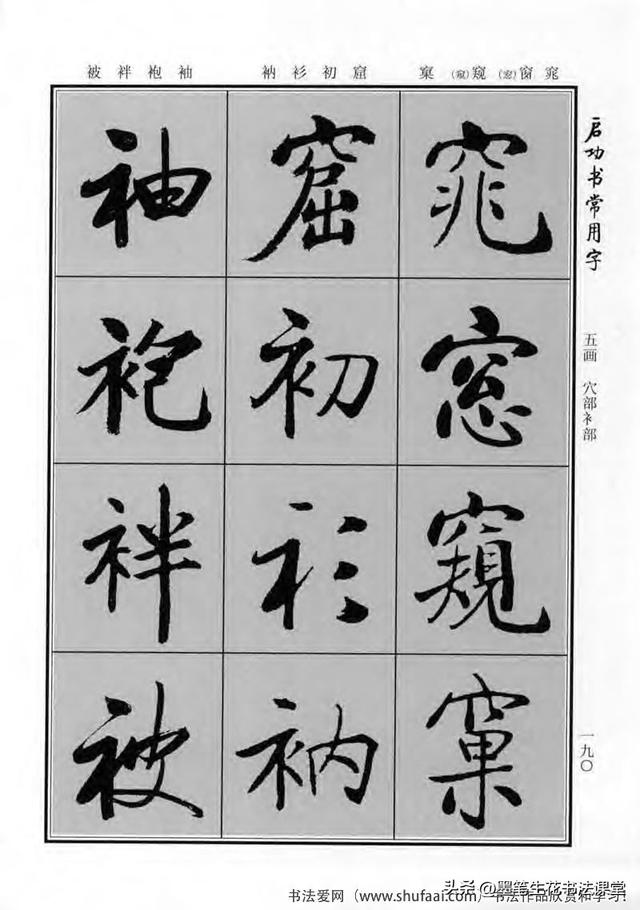 窕窗(窓)窥(窺)窠
窟初衫衲
袖袍袢被
启功书常用字
五画 穴部衤部
一九〇
窕
窓
窺
窠
窟
初
衫
衲
袖
袍
袢
被
头条 @墨笔生花书法课堂
书法爱网（www.shufaai.com）书法作品欣赏和学习